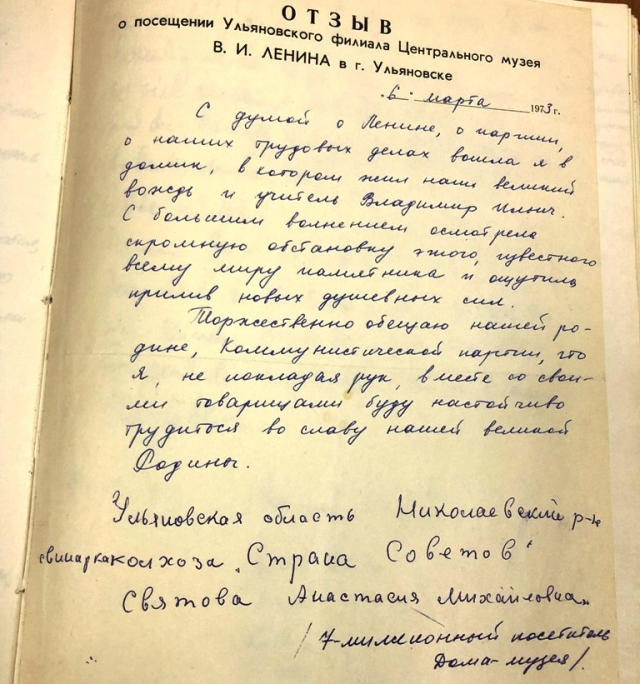 ОТЗЫВ
о посещении Ульяновского филиала Центрального музея
В. И. ЛЕНИНА в г. Ульяновске
6 марта 1973 г.
С думой о Ленине, о партии,
о наших трудовых делах вошла я в
домик, в котором жил наш великий
вождь и учитель Владимир Ильич.
С большим волнением осмотрела
скромную обстановку этого, известного
всему миру памятника и ощутила
прилив новых душевных сил.
Торжественно обещаю нашей ро-
дине, Коммунистической партии, что
я, не покладая рук, вместе со свои-
ми товарищами буду настойчиво
трудиться во славу нашей великой
Родины.
Ульяновская область Николаевский р-н
свинарка колхоза „Страна Советов"
Святова Анастасия Михайловна
/7-милионный посетитель
Дома-музея/.